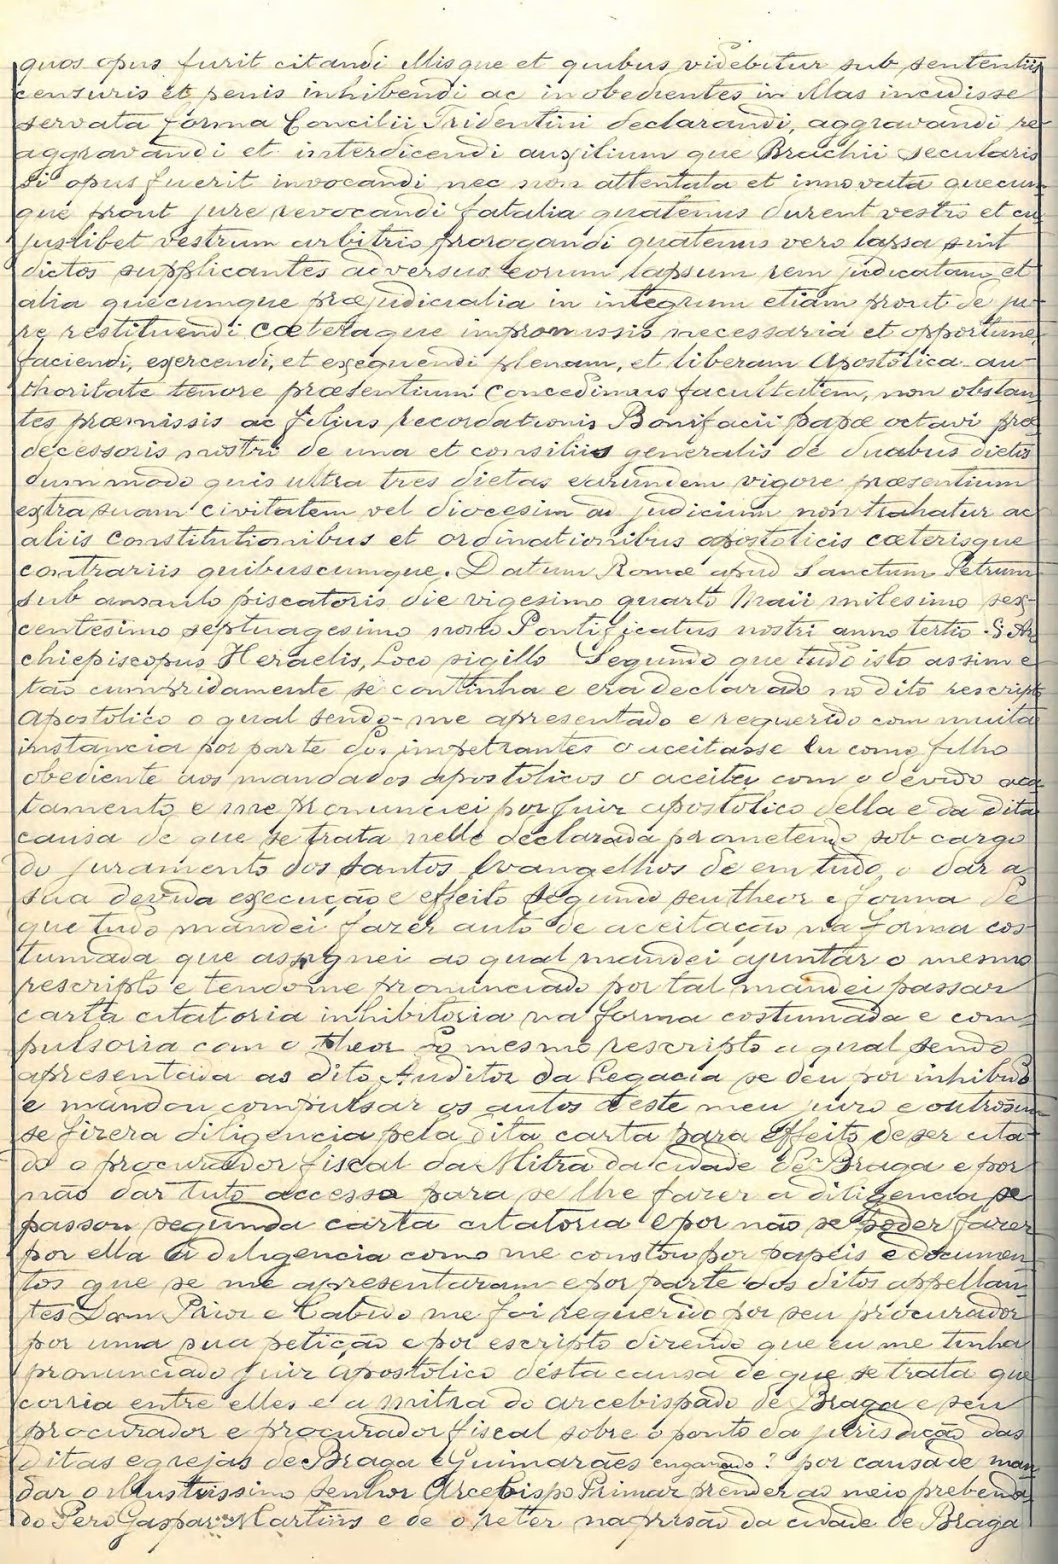 quos opus furit citandi illisque et quibus videbitur sub sententiis
censuris et penis inhibendi ac inobedientes in illas incidisse
servata forma Concilii Tridentini declarandi, aggravandi re-
aggravandi et interdicendi auxilium que Brachii secularis
si opus fuerit invocandi nec non attentata et innovata quecun-
que prout jure revocandi fatalia quatenus durent vestro et cu-
juslibet vestrum arbitrio prorogandi quatenus vero lassa sint
dictos supplicantes adversus eorum lapsum rem judicatam et
alia quecumque præjudicialia in integrum etiam prout de ju-
re restituendi cæteraque in promissis necessaria et opportune
faciendi, exercendi, et exequendi plenam, et liberam Apostolica au-
thoritate tenore præsentium concedimus facultatem, non obstan-
tes præmissis ac felius recordationis Bonifacii papæ octavi præ
decessoris nostri de una et consiliis generalis de duabus dietis
dummodo quis ultra tres dietas earumdem vigore præsentium
extra suam civitatem vel diocesim ad judicium non trahatur ac
aliis constitutionibus et ordinationibus apostolicis cæterisque
contrariis quibuscumque. Datum Romæ apud Sanctum Petrum
sub annulo piscatoris die vigesimo quarto Maii milesimo sex-
centesimo septuagesimo nono Pontificatus nostri anno tertio. S Ar
chiepiscopus Heraelis, Loco sigillo Segundo que tudo isto assim e
tão cumpridamente se continha e era declarado no dito rescripto
Apostolico o qual sendo-me apresentado e requerido com muita
instancia por parte dos impetrantes o aceitasse Eu como filho
obediente aos mandados apostolicos o aceitei com o devido aca
tamento e me pronunciei por juir apostolico della e da dita
causa de que se trata nelle declarada prometendo sob cargo
do juramento dos Santos Evangelhos de em tudo, o dar a
sua devida execução e effeito segundo seu theor e forma de
que tudo mandei fazer auto de aceitação na forma cos-
tumada que assignei ao qual mandei ajuntar o mesmo
rescripto e tendo me pronunciado por tal mandei passar
carta citatoria inhibitoria na forma costumada e com
pulsoria com o theor do mesmo rescripto a qual sendo
apresentada ao dito Auditor da Legacia se deu por inhibido
e mandou compulsar os autos deste meu juizo e outrosim
se fizera diligencia pela dita carta para effeito de ser cita-
do o procurador fiscal da Mitra da cidade de Braga e por
não dar tuto accesso para se lhe fazer a diligencia se
passou segunda carta citatoria e por não se poder fazer
por ella a diligencia como me constou por papeis e documen-
tos que se me apresentaram e por parte dos ditos appellan-
tes Dom Prior e Cabido me foi requerido por seu procurador
por uma sua petição e por escripto dizendo que eu me tinha
pronunciado juiz apostolico désta causa de que se trata que
corria entre elles e a mitra do arcebispado de Braga e seu
procurador e procurador fiscal sobre o ponto da jurisdição das
ditas egrejas de Braga e Guimarães enganado? por causa de man-
dar o Illustrissimo Senhor Arcebispo Primaz prender ao meio prebenda-
do Pero Gaspar Martins e de o reter na prisão da cidade de Braga